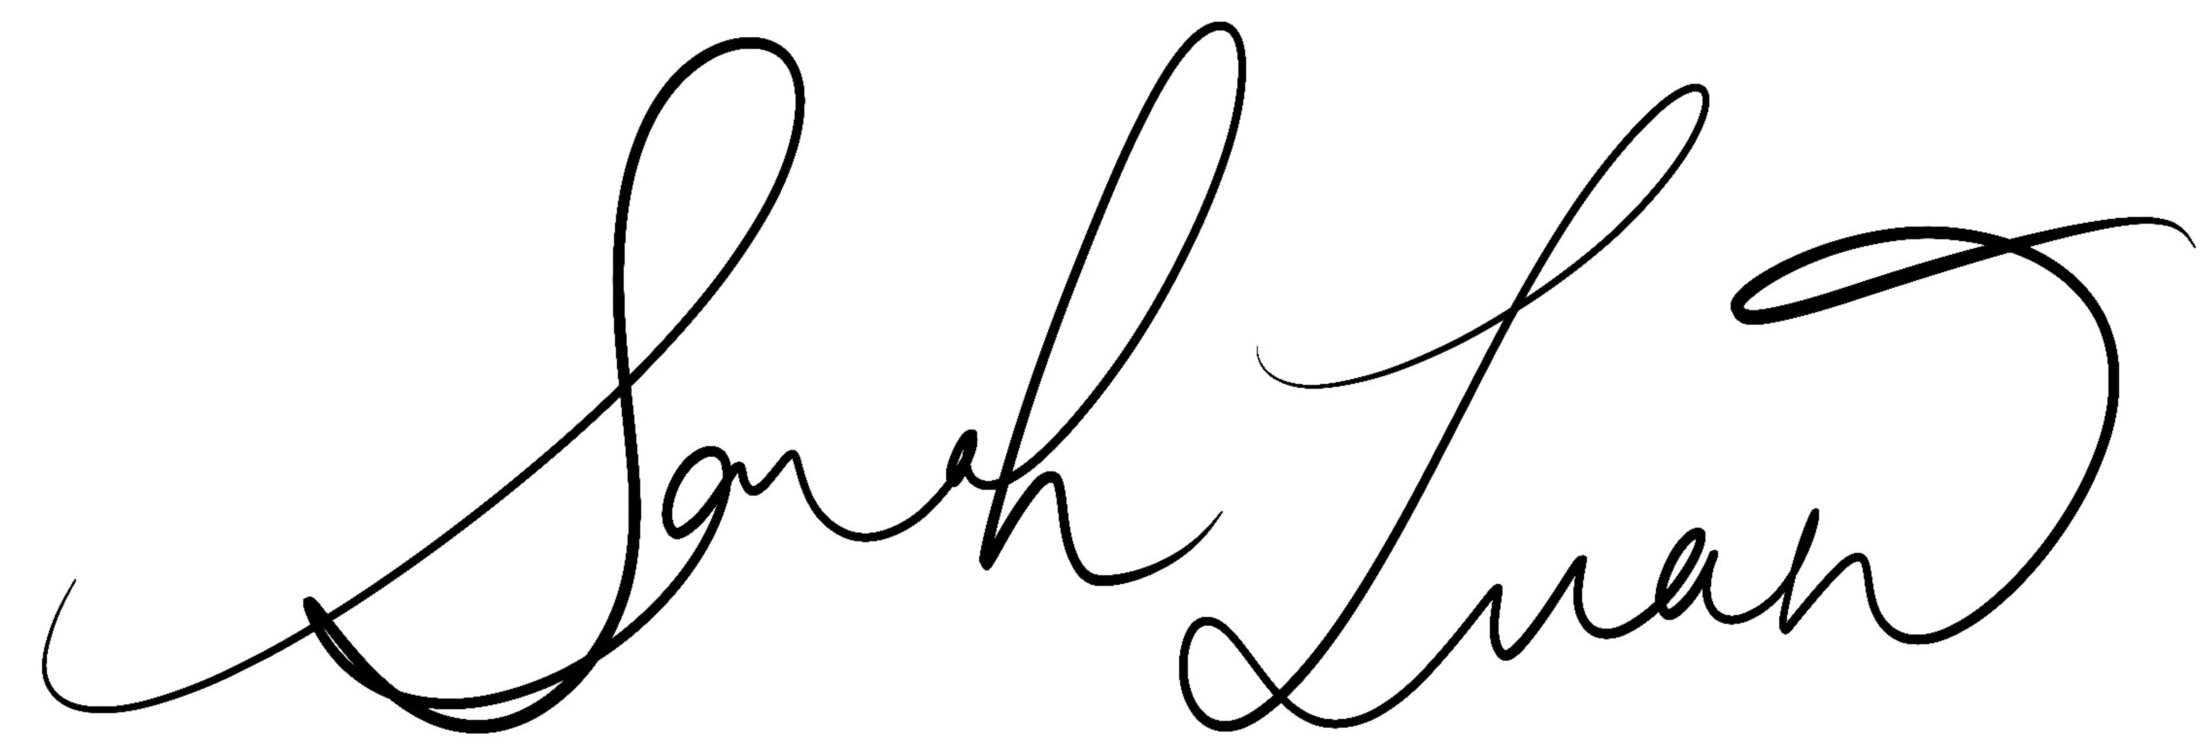 Sarah Luan